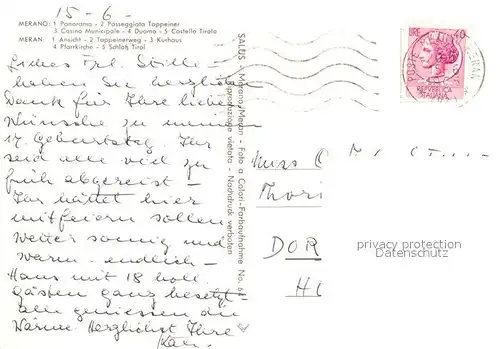 15 - 6 -
MERANO: 1 Panorama - 2 Passeggiata Tappeiner
3 Casino Municipale - 4 Duomo - 5 Castello Tirolo
MERAN: 1 Ansicht - 2 Tappeinerweg - 3 Kurhaus
4 Pfarrkirche - 5 Schloß Tirol
Liebes Frl.
haben Sie herzlich
Dank für Ihre lieben
Wünsche zu meinem
17. Geburtstag. Ihr
seid alle viel zu
früh abgereist -
Ihr hättet hier
mitfeiern sollen
Wetter sonnig und
warm endlich -
Haus mit 18 holl.
Gästen ganz besetzt -
alle geniessen die
Wärme. Herzlichst Ihre
SALUS - Merano/Meran - Foto a Colori-Farbaufnahme No. 6
Riproduzione vietata - Nachdruck verboten
LIRE 40
REPVBBLICA
ITALIANA
Miss
DOR
privacy protection
Datenschutz